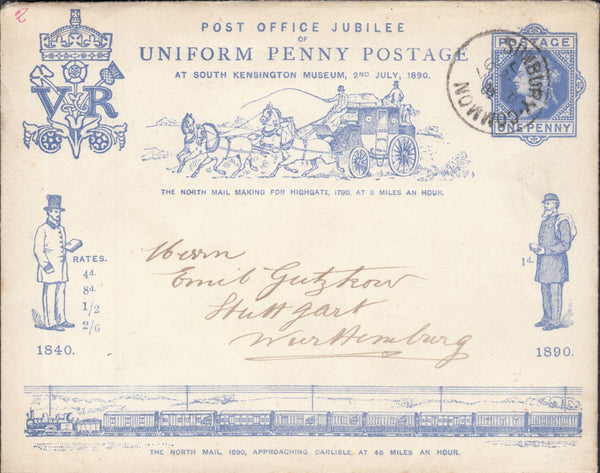 2
POST OFFICE JUBILEE
OF
UNIFORM PENNY POSTAGE
AT SOUTH KENSINGTON MUSEUM, 2ND JULY, 1890.
VR
POSTAGE
ONE PENNY
SUNBURY-COMMON
THE NORTH MAIL MAKING FOR HIGHGATE, 1790, AT 8 MILES AN HOUR.
RATES.
4d.
8d.
1/2
2/6
1840.
Herrn
Emil Gutzkow
Stuttgart
Wurthemburg
1d.
1890.
THE NORTH MAIL, 1890, APPROACHING CARLISLE, AT 48 MILES AN HOUR.